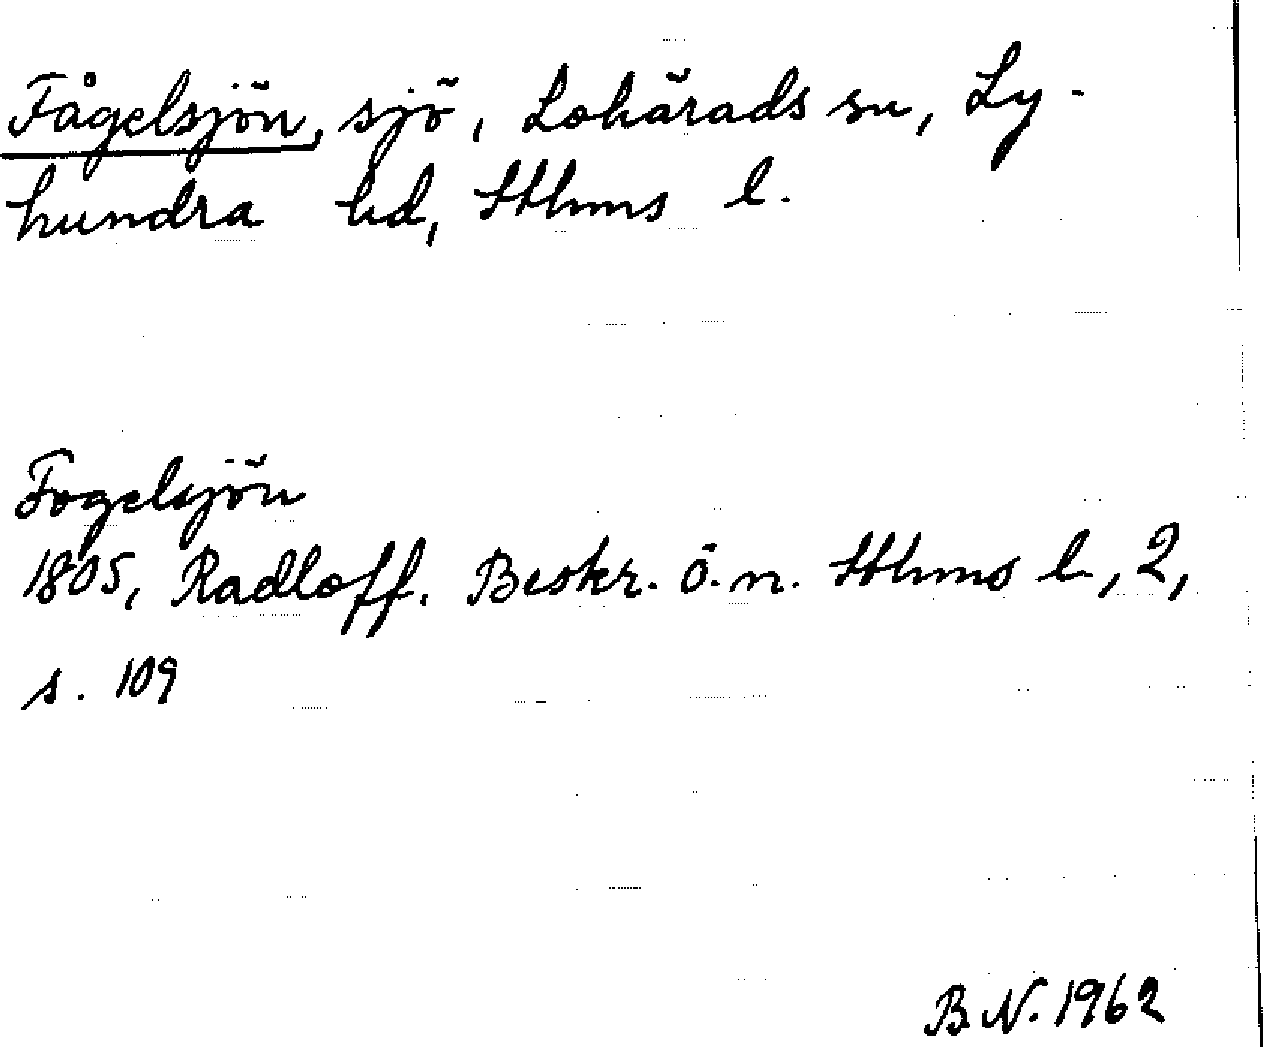 Fågelsjön, sjö, Lohärads sn, Ly-
hundra hd, Sthms l.
Fogelsjön
1805, Radloff. Beskr. ö. n. Sthms l., 2,
s. 109
B.N. 1962